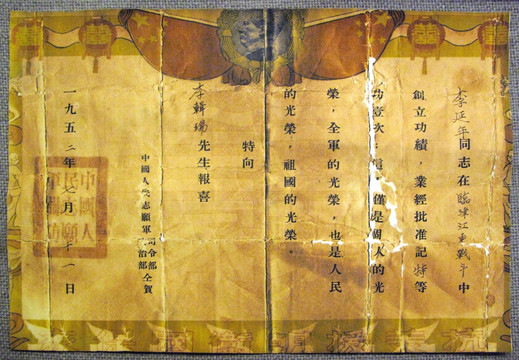 李延年同志在臨津江東戰斗中
創立功績，業經批准記特等
功壹次，這僅是個人的光
榮，全軍的光榮，也是人民
的光榮，祖國的光榮。
特向
李輯先生報喜
中國人志願軍司令部
治部仝賀
一九五二年七月十一日